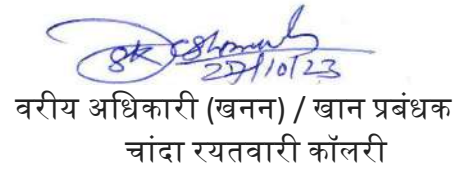 27/10/23
वरीय अधिकारी (खनन) / खान प्रबंधक
चांदा रयतवारी कॉलरी